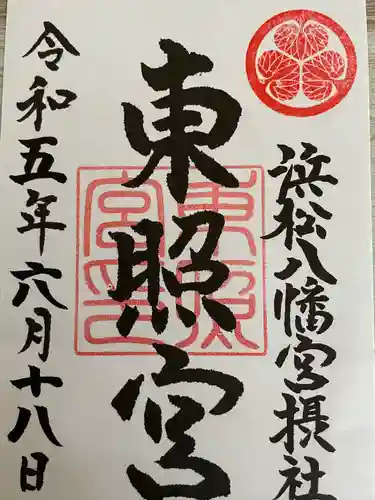 浜松八幡宮摂社
東照宮
東照宮印
令和五年六月十八日